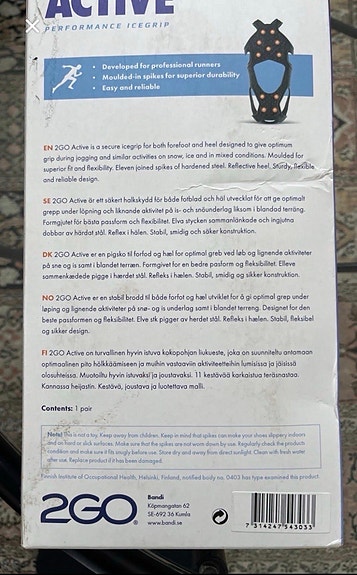 ACTIVE
PERFORMANCE ICEGRIP
• Developed for professional runners
• Moulded-in spikes for superior durability
• Easy and reliable
EN 2GO Active is a secure icegrip for both forefoot and heel designed to give optimum
grip during jogging and similar activities on snow, ice and in mixed conditions. Moulded for
superior fit and flexibility. Eleven joined spikes of hardened steel. Reflective heel. Sturdy, flexible
and reliable design.
SE 2GO Active är ett säkert halkskydd för både fotblad och häl utvecklat för att ge optimalt
grepp under löpning och liknande aktivitet på is- och snöunderlag liksom i blandad terräng.
Formgjutet för bästa passform och flexibilitet. Elva stycken sammanlänkade och ingjutna
dobbar av härdat stål. Reflex i hälen. Stabil, smidig och säker konstruktion.
DK 2GO Active er en pigsko til forfod og hæl for optimal greb ved løb og lignende aktiviteter
på sne og is samt i blandet terræn. Formgivet for en bedre pasform og fleksibilitet. Elleve
sammenkædede pigge i hærdet stål. Refleks i hælen. Stabil, smidig og sikker konstruktion.
NO 2GO Active er en stabil brodd til både forfot og hæl utviklet for å gi optimal grep under
løping og lignende aktiviteter på snø- og is underlag samt i blandet terreng. Designet for den
beste passformen og fleksibilitet. Elve stk pigger av herdet stål. Refleks i hælen. Stabil, fleksibel
og sikker design.
FI 2GO Active on turvallinen hyvin istuva kokopohjan liukueste, joka on suunniteltu antamaan
optimaalinen pito hölkkäämiseen ja muihin vastaaviin aktiviteetteihin lumisissa ja jäisissä
olosuhteissa. Muotoiltu hyvin istuvaksi ja joustavaksi. 11 kestävää karkaistua teräsnastaa.
Kannassa heijastin. Kestävä, joustava ja luotettava malli.
Contents: 1 pair
Note! This is not a toy. Keep away from children. Keep in mind that spikes can make your shoes slippery indoors
and on hard or slick surfaces. Make sure that the spikes are not worn down by use. Regularly check the products
condition and make sure it fits snugly before use. Store dry and away from direct sunlight. Clean with fresh water
after use. Replace product if it has been damaged.
Finnish Institute of Occupational Health, Helsinki, Finland, notified body no. 0403 has type examined this product.
2GO®
Bandi
Köpmangatan 62
SE-692 36 Kumla
www.bandi.se
7 314247 343033